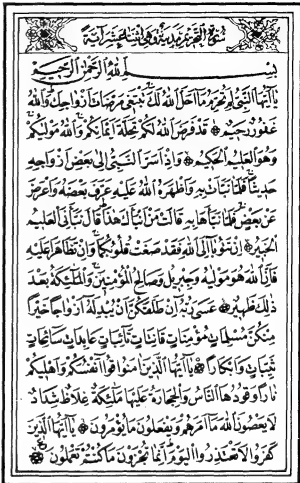 سُورَةُ التَّحْرِيمِ مَدَنِيَّةٌ وَهِيَ اثْنَتَا عَشْرَةَ اٰيَةً
بِسْمِ اللّٰهِ الرَّحْمٰنِ الرَّحِيمِ
يَٓا اَيُّهَا النَّبِيُّ لِمَ تُحَرِّمُ مَٓا اَحَلَّ اللّٰهُ لَكَۚ تَبْتَغِي مَرْضَاتَ اَزْوَاجِكَۜ وَاللّٰهُ
غَفُورٌ رَحِيمٌ ۞ قَدْ فَرَضَ اللّٰهُ لَكُمْ تَحِلَّةَ اَيْمَانِكُمْۚ وَاللّٰهُ مَوْلٰيكُمْۚ
وَهُوَ الْعَلِيمُ الْحَكِيمُ ۞ وَاِذْ اَسَرَّ النَّبِيُّ اِلٰى بَعْضِ اَزْوَاجِهِ
حَدِيثًاۚ فَلَمَّا نَبَّاَتْ بِهِ وَاَظْهَرَهُ اللّٰهُ عَلَيْهِ عَرَّفَ بَعْضَهُ وَاَعْرَضَ
عَنْ بَعْضٍۚ فَلَمَّا نَبَّاَهَا بِهِ قَالَتْ مَنْ اَنْبَاَكَ هٰذَاۜ قَالَ نَبَّاَنِيَ الْعَلِيمُ
الْخَبِيرُ ۞ اِنْ تَتُوبَٓا اِلَى اللّٰهِ فَقَدْ صَغَتْ قُلُوبُكُمَاۚ وَاِنْ تَظَاهَرَا عَلَيْهِ
فَاِنَّ اللّٰهَ هُوَ مَوْلٰيهُ وَجِبْرِيلُ وَصَالِحُ الْمُؤْمِنِينَۚ وَالْمَلٰٓئِكَةُ بَعْدَ
ذٰلِكَ ظَهِيرٌ ۞ عَسٰى رَبُّهُٓ اِنْ طَلَّقَكُنَّ اَنْ يُبْدِلَهُٓ اَزْوَاجًا خَيْرًا
مِنْكُنَّ مُسْلِمَاتٍ مُؤْمِنَاتٍ قَانِتَاتٍ تَٓائِبَاتٍ عَابِدَاتٍ سَٓائِحَاتٍ
ثَيِّبَاتٍ وَاَبْكَارًا ۞ يَٓا اَيُّهَا الَّذِينَ اٰمَنُوا قُٓوا اَنْفُسَكُمْ وَاَهْلِيكُمْ
نَارًا وَقُودُهَا النَّاسُ وَالْحِجَارَةُ عَلَيْهَا مَلٰٓئِكَةٌ غِلَاظٌ شِدَادٌ
لَا يَعْصُونَ اللّٰهَ مَٓا اَمَرَهُمْ وَيَفْعَلُونَ مَا يُؤْمَرُونَ ۞ يَٓا اَيُّهَا الَّذِينَ
كَفَرُوا لَا تَعْتَذِرُوا الْيَوْمَۜ اِنَّمَا تُجْزَوْنَ مَا كُنْتُمْ تَعْمَلُونَ ۞